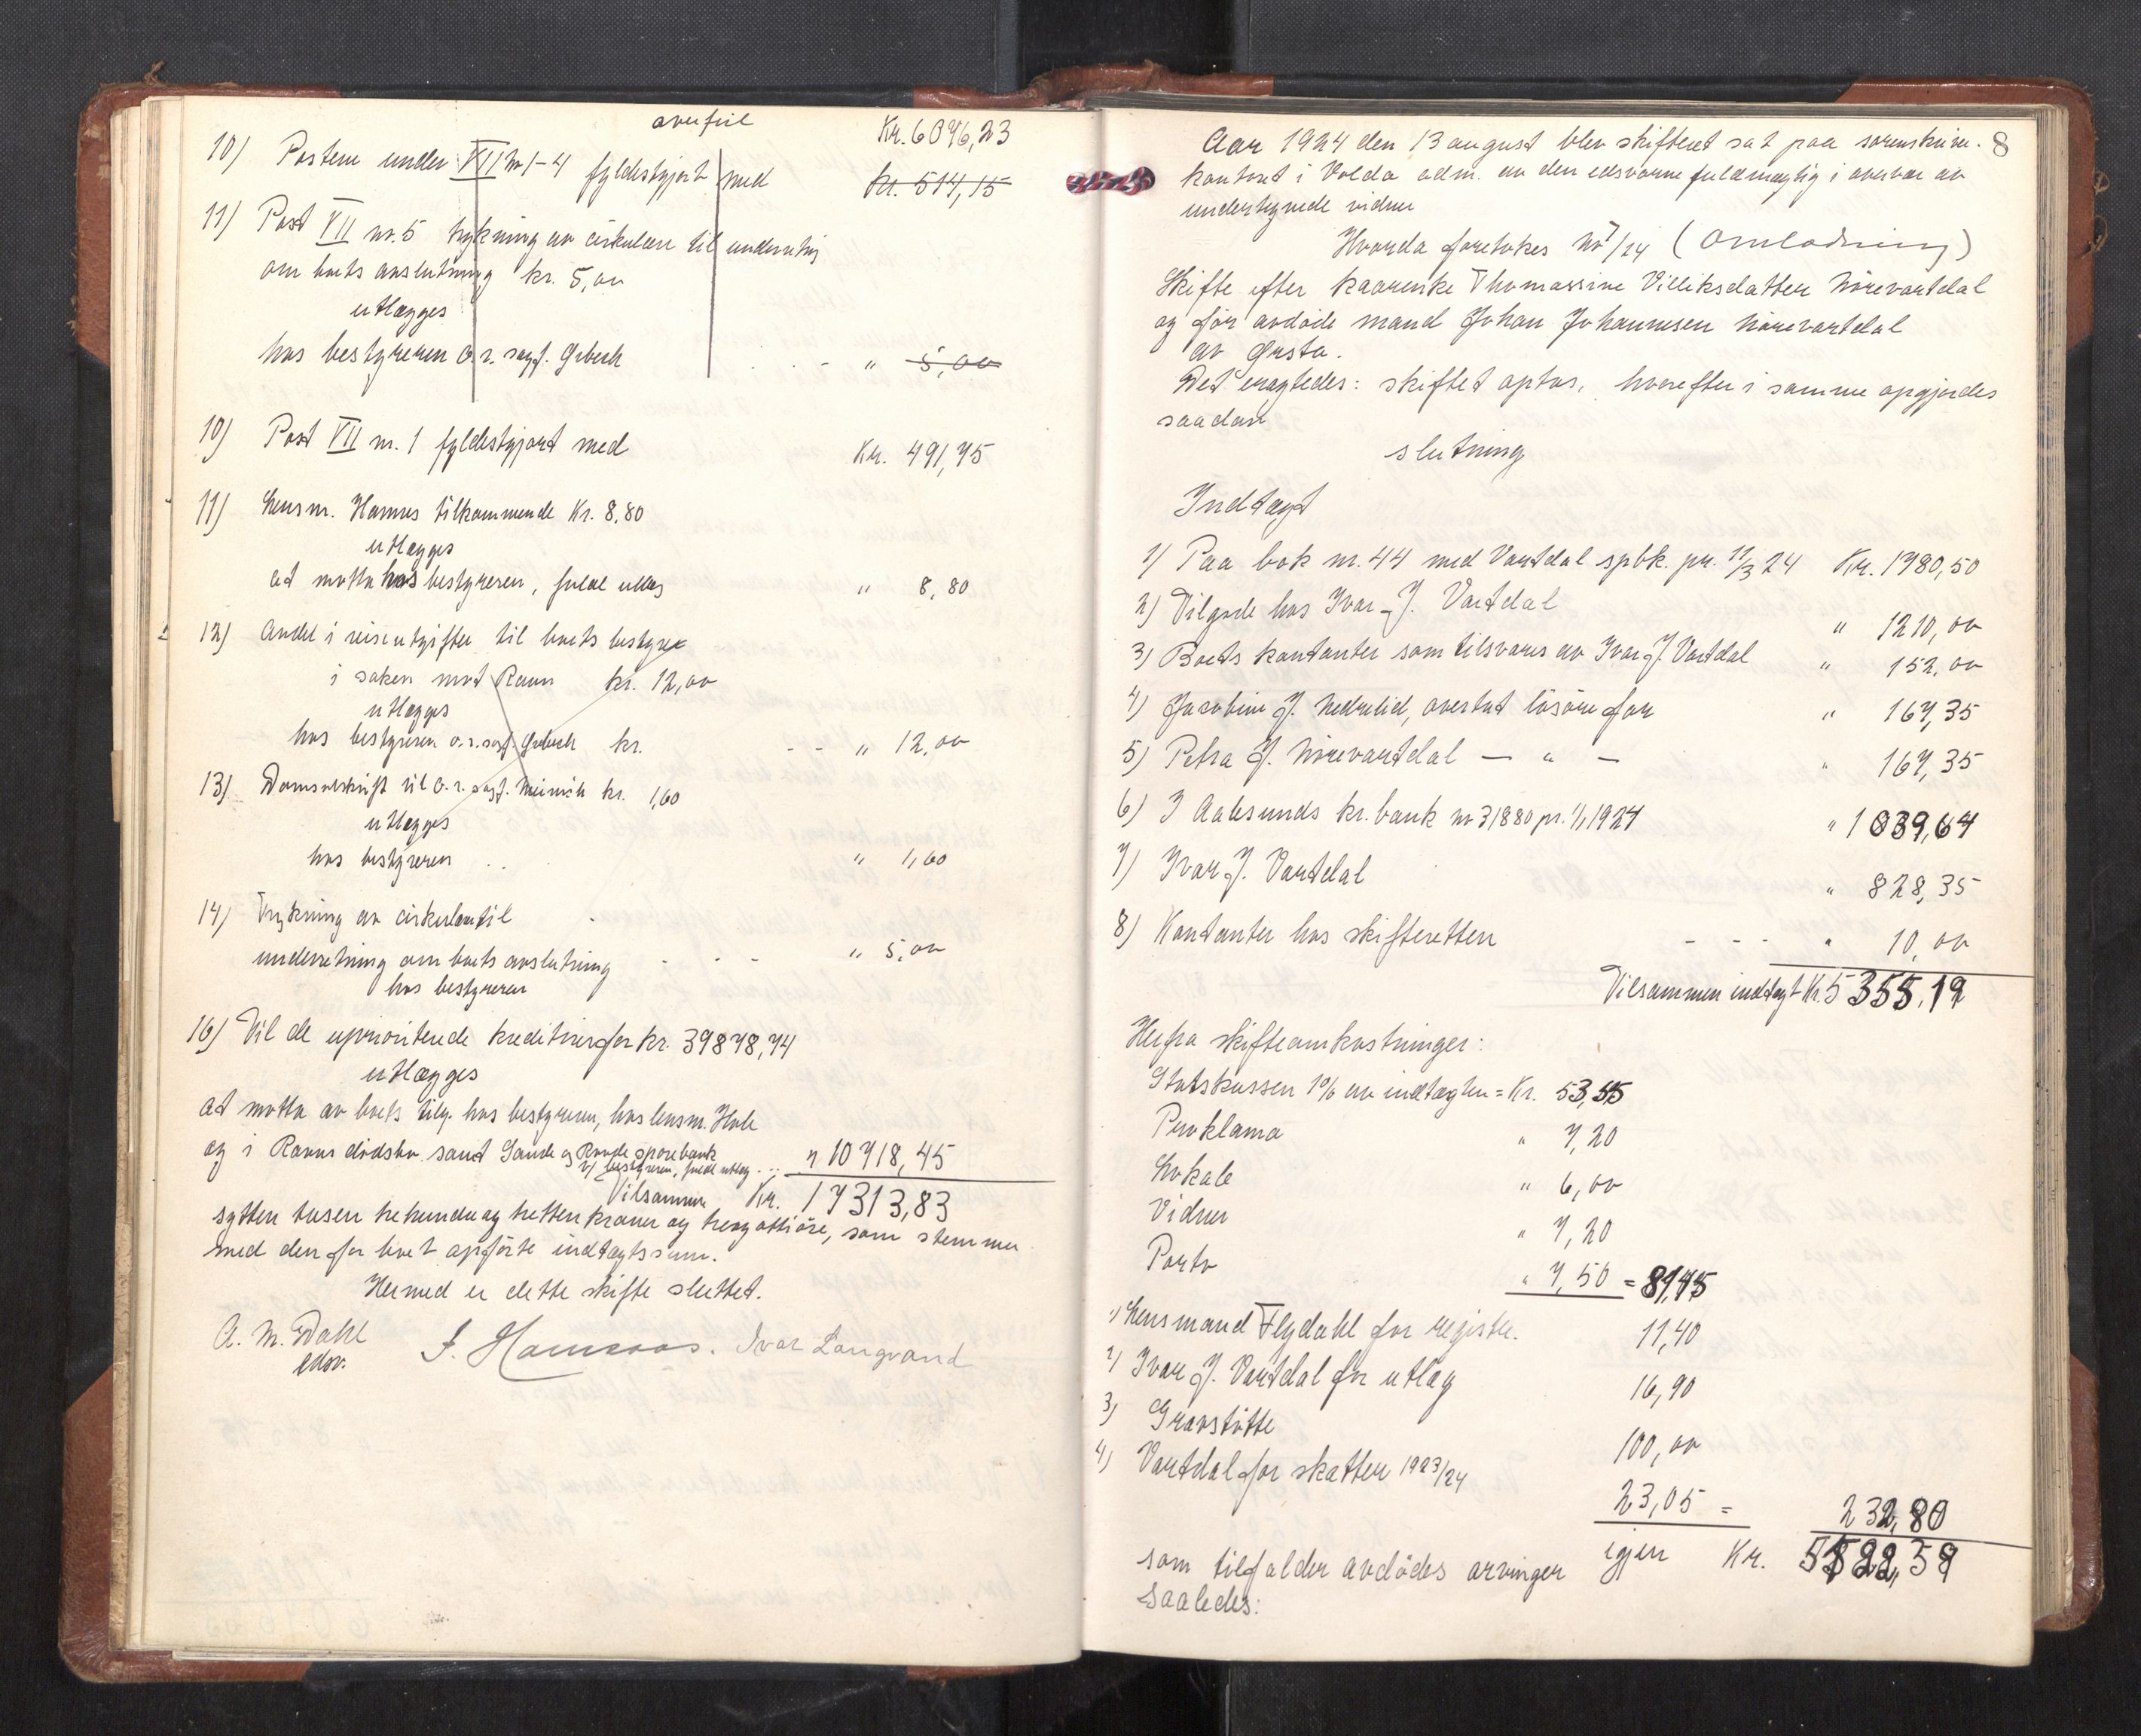 overført Kr. 6076,23
10) Postene under VII nr 1-4 fyldestgjort med kr. 514,15
11) Post VII nr. 5 trykning av cirkulære til underretning
om boets avslutning kr. 5,00
utlægges
hos bestyreren o.r.sagf. " 5,00
10) Post VII nr. 1 fyldestgjort med Kr. 491,75
11) Lensm. tilkommende Kr. 8,80
utlægges
at motta hos bestyreren, " 8,80
12) Andel i reiseutgifter til boets bestyrer
i saken mot Ravn kr. 12,00
utlægges
hos bestyreren o.r.sagf. kr. - - " 12,00
13) Domsutskrift til o.r.sagf. kr. 1,60
utlægges
hos bestyreren .. " 1,60
14) Trykning av cirkulære til
underretning om boets avslutning - - - " 5,00
hos bestyreren
16) Til de uprioriterte kreditorer for kr. 39878,74
utlægges
at motta av boets tilg. hos bestyreren, hos lensm.
og i Ravns dødsbo samt Sande og Rovde sparebank " 10718,45
Tilsammen Kr. 17313,83
sytten tusen trehundre og tretten kroner og treogotti øre, som stemmer
med den for boet opførte indtægtssum.
Hermed er dette skifte sluttet.
A. M. Dahl
edsv.
Ivar Langvand
8
Aar 1924 den 13 august blev skifteret sat paa sorenskriver-
kontoret i Volda adm. av den edsvorne fuldmægtig i overvær av
undertegnede vidner
Hvorda foretokes nr 7/24 (Omlodning)
Skifte efter kaarenke Thomassine Nørevartdal
og før avdøde mand Johan Johannesen Nørevartdal
av Ørsta.
Det eragtedes: skiftet optas, hvorefter i samme opgjordes
saadan
slutning
Indtægt
1) Paa bok nr. 44 med Vartdal spbk. pr. 11/3 24 Kr. 1780,50
2) Tilgode hos Ivar J. Vartdal " 1210,00
3) Boets kontanter som tilsvares av Ivar J. Vartdal " 152,00
4) Jacobine J. Nedrelid, overtat løsøre for " 167,35
5) Petra J. Nørevartdal — " — " 167,35
6) I Aalesunds kr. bank nr 31880 pr. 1/1 1924 " 1039,64
7) Ivar J. Vartdal " 828,35
8) Kontanter hos skifteretten - - - " 10,00
Tilsammen indtægt Kr. 5355,19
Herfra skifteomkostninger:
Statskassen 1% av indtægten = Kr. 53,55
Proklama " 7,20
Lokale " 6,00
Vidner " 7,20
Porto " 7,50 = 81,45
1) Lensmand Flydahl for registr. 11,40
2) Ivar J. Vartdal for utlæg 16,90
3) Gravstøtte 100,00
4) Vartdal for skatter 1923/24 23,05 = 232,80
igjen Kr. 5122,39
som tilfalder avdødes arvinger
saaledes: